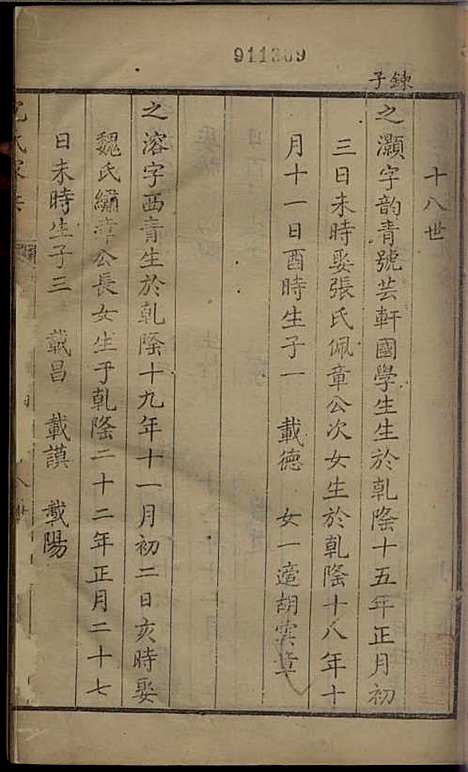 911309
鍊子
十八世
之灝字韵青號芸軒國學生生於乹隆十五年正月初
三日未時娶張氏佩章公次女生於乹隆十八年十
月十一日酉時生子一 載德 女一適胡雲章
之溶字西青生於乹隆十九年十一月初二日亥時娶
魏氏繡章公長女生于乹隆二十二年正月二十七
日未時生子三 載昌 載謨 載陽